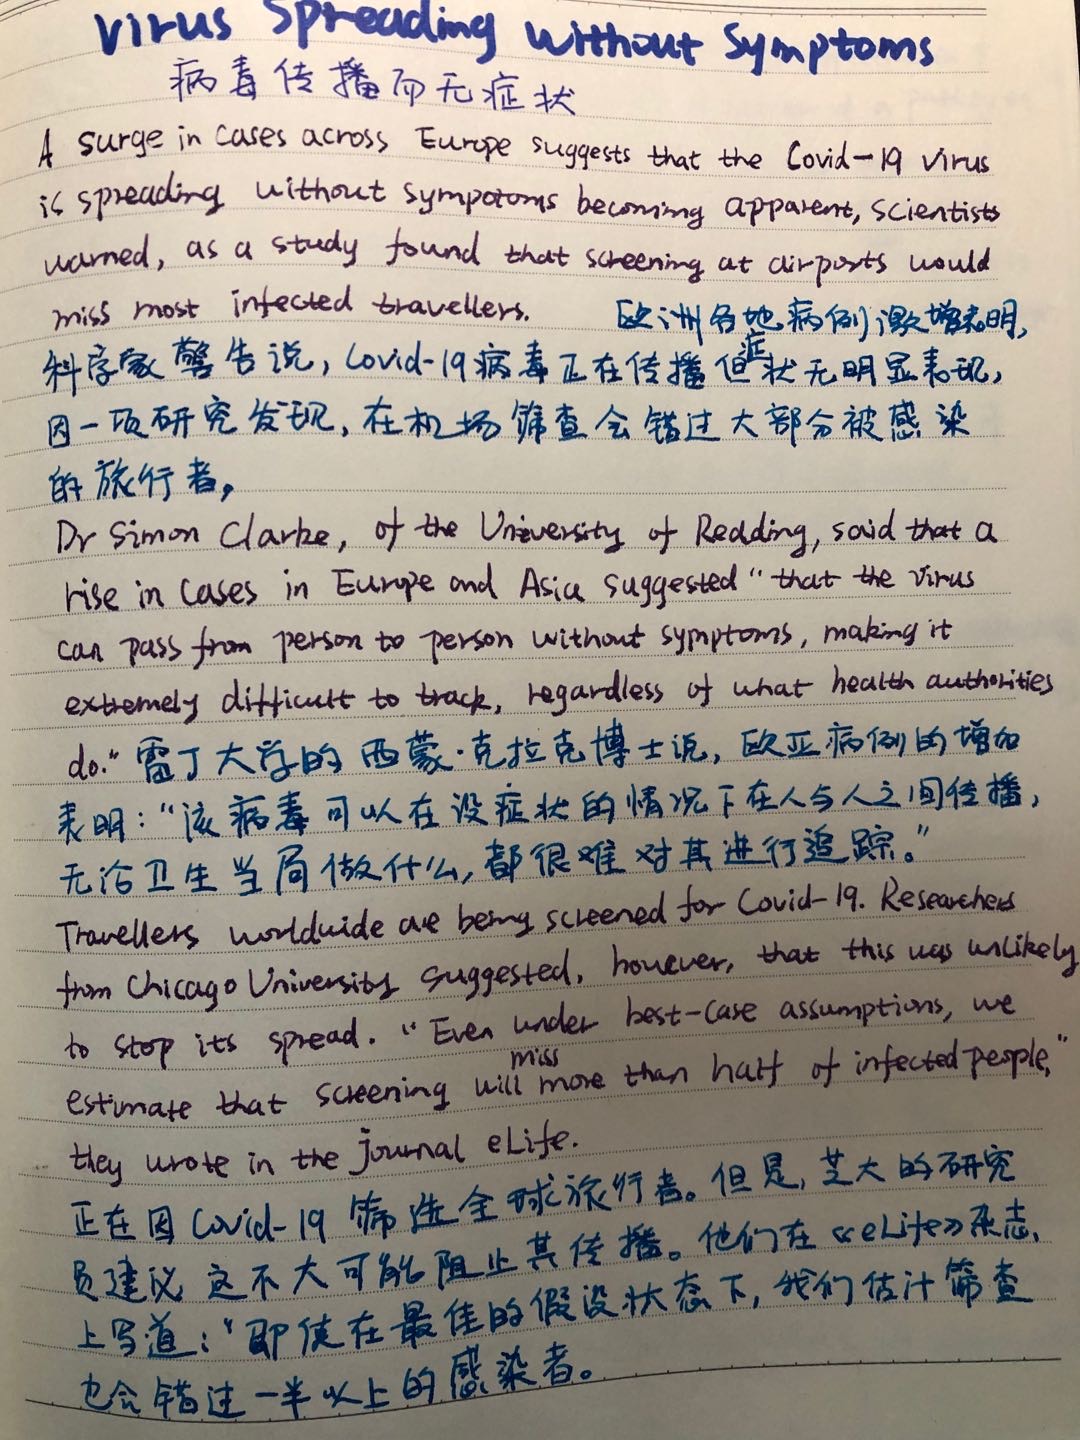 Virus Spreading Without Symptoms
病毒传播而无症状
A surge in cases across Europe suggests that the Covid-19 virus
is spreading without sympotoms becoming apparent, scientists
warned, as a study found that screening at airports would
miss most infected travellers. 欧洲各地病例激增表明,
科学家警告说, Covid-19病毒正在传播但症状无明显表现,
因一项研究发现, 在机场筛查会错过大部分被感染
的旅行者。
Dr Simon Clarke, of the University of Redding, said that a
rise in cases in Europe and Asia suggested "that the virus
can pass from person to person without symptoms, making it
extremely difficult to track, regardless of what health authorities
do." 雷丁大学的西蒙·克拉克博士说, 欧亚病例的增加
表明: "该病毒可以在没症状的情况下在人与人之间传播,
无论卫生当局做什么, 都很难对其进行追踪。"
Travellers worldwide are being screened for Covid-19. Researchers
from Chicago University suggested, however, that this was unlikely
to stop its spread. "Even under best-case assumptions, we
estimate that screening will miss more than half of infected people,"
they wrote in the journal eLife.
正在因Covid-19 筛选全球旅行者。但是, 芝大的研究
员建议 这不大可能阻止其传播。他们在《eLife》杂志,
上写道: "即使在最佳的假设状态下, 我们估计筛查
也会错过一半以上的感染者。